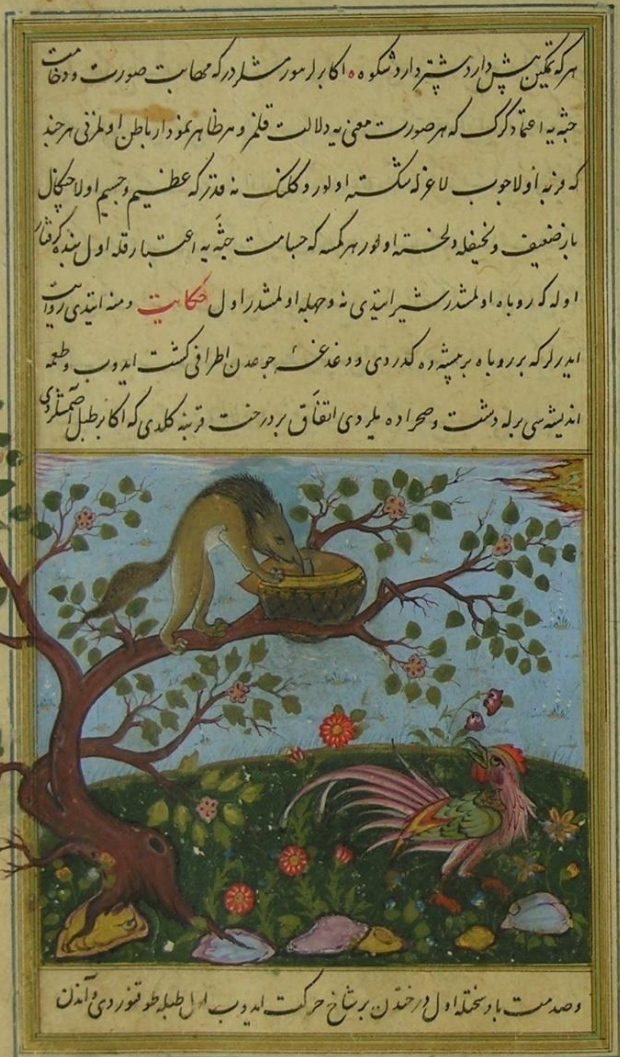 هر که تمکین بیش دارد بیشتر دارد شکوه اکابر لر مور مشلردر که مهابت صورت و ضخامت
جثه یه اعتماد کرک که هر صورت معنی یه دلالت قلمز و هر ظاهر نمودار باطن اولمز نی هر چند
که فربه اولا چوب لاغرله شکسته اولور و کلنک نه قدر که عظیم و جسیم اولا چنکال
باز ضعیف و نحیفله دلخسته اولور هر کمسه که جسامت جثه یه اعتبار قله اول بنده کرفتار
اوله که روباه اولمشدر شیر ایتدی نه وجهله اولمشدر اول حکایت دمنه ایتدی روایت
ایدرلر که بر روباه بر میشه ده کدردی و دغدغه جوعدن اطرافی کشت ایدوب و طعمه
اندیشه سی برله دشت و صحراده یلردی اتفاق بر درخت قربنه کلدی که اکا بر طبل آصمشلردی
وصدمت باد سختله اول درختدن بر شاخ حرکت ایدوب اول طبله طوقنوردی و آندن